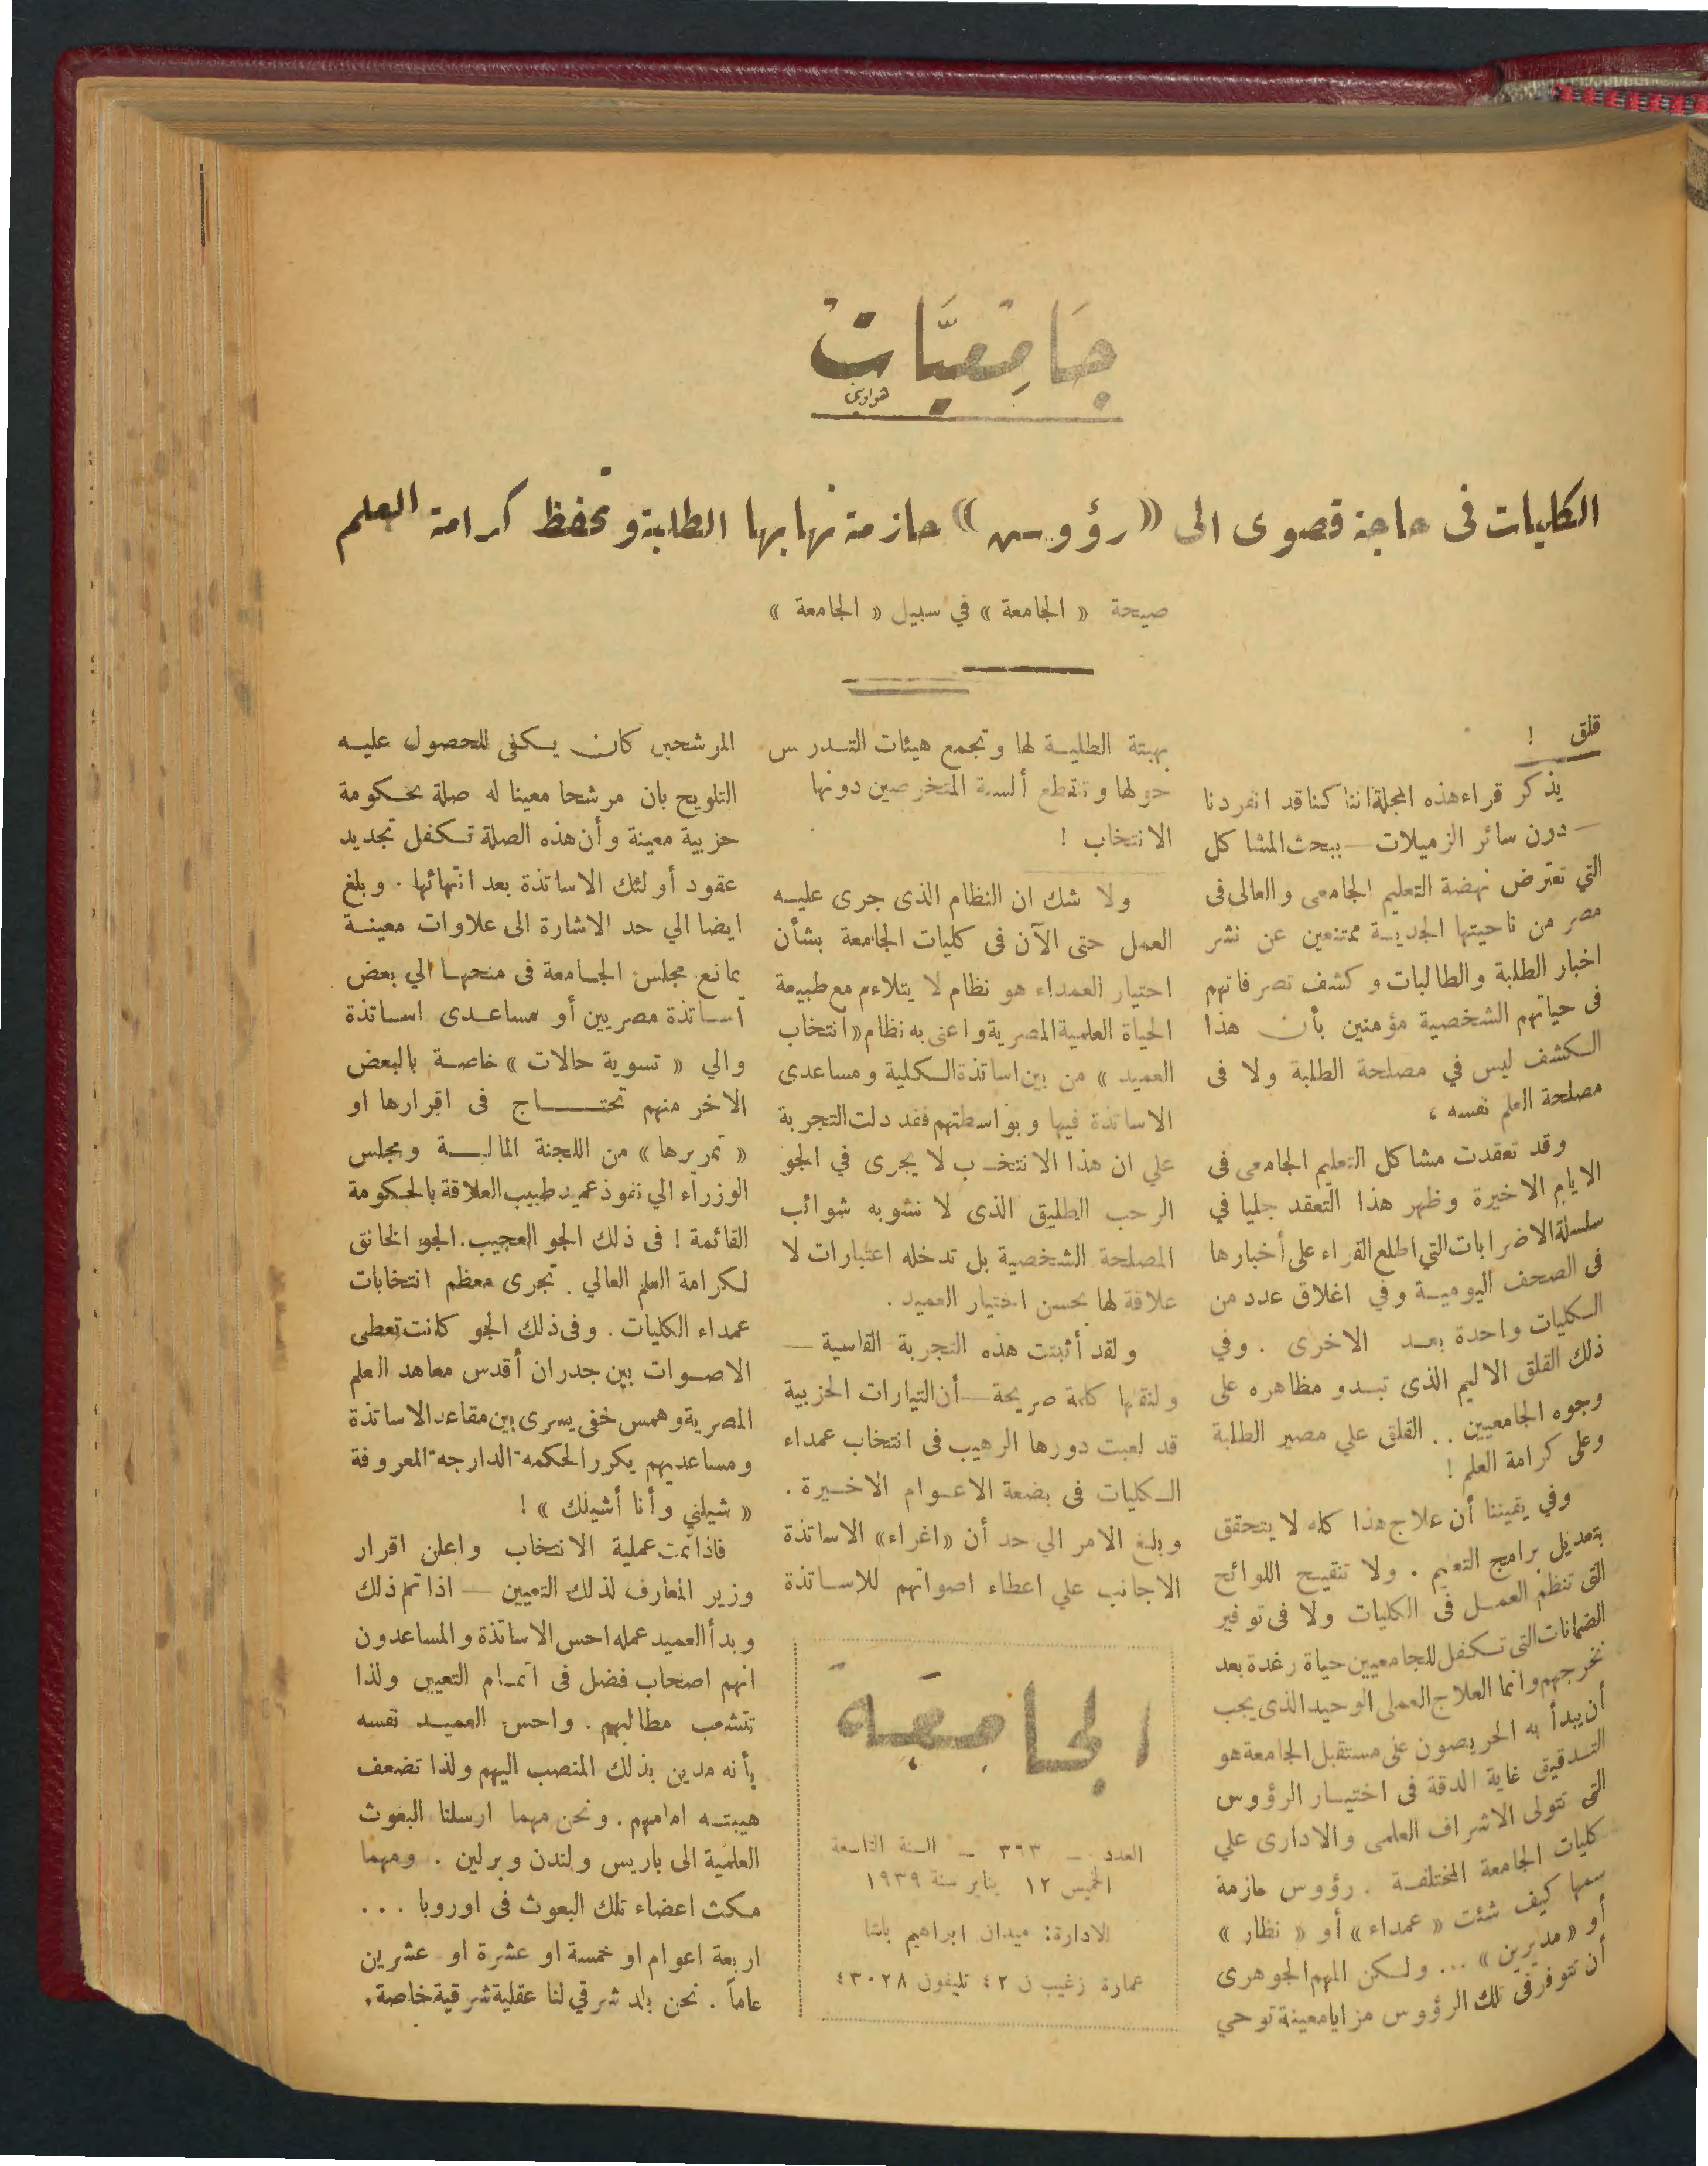 جَامِعيَّات
هواويني
الكليات فى حاجة قصوى الى « رؤوس » حازمة تهابها الطلبة وتحفظ كرامة العلم
صيحة « الجامعة » في سبيل « الجامعة »
قلق !
يذكر قراء هذه المجلة اننا كنا قد انفردنا
— دون سائر الزميلات — ببحث المشاكل
التي تعترض نهضة التعليم الجامعى والعالى فى
مصر من ناحيتها الجدية ممتنعين عن نشر
اخبار الطلبة والطالبات وكشف تصرفاتهم
فى حياتهم الشخصية مؤمنين بأن هذا
الكشف ليس في مصلحة الطلبة ولا فى
مصلحة العلم نفسه ،
وقد تعقدت مشاكل التعليم الجامعى فى
الايام الاخيرة وظهر هذا التعقد جليا في
سلسلة الاضرابات التي اطلع القراء على أخبارها
فى الصحف اليومية وفي اغلاق عدد من
الكليات واحدة بعد الاخرى . وفي
ذلك القلق الاليم الذى تبدو مظاهره على
وجوه الجامعيين . . القلق علي مصير الطلبة
وعلى كرامة العلم !
وفي يقيننا أن علاج هذا كله لا يتحقق
بتعديل برامج التعليم . ولا تنقيح اللوائح
التى تنظم العمل فى الكليات ولا فى توفير
الضمانات التى تكفل للجامعيين حياة رغدة بعد
تخرجهم وانما العلاج العملى الوحيد الذى يجب
أن يبدأ به الحريصون على مستقبل الجامعة هو
التدقيق غاية الدقة فى اختيار الرؤوس
التى تتولى الاشراف العلمى والادارى علي
كليات الجامعة المختلفة . رؤوس حازمة
سمها كيف شئت « عمداء » أو « نظار »
أو « مديرين » ... ولكن المهم الجوهرى
أن تتوفر فى تلك الرؤوس مزايا معينة توحي
بهبتة الطلبة لها وتجمع هيئات التدرس
حولها وتقطع ألسنة المتخرصين دونها
الانتخاب !
ولا شك ان النظام الذى جرى عليه
العمل حتى الآن فى كليات الجامعة بشأن
احتيار العمداء هو نظام لا يتلاءم مع طبيعة
الحياة العلمية المصرية واعنى به نظام « انتخاب
العميد » من بين اساتذة الكلية ومساعدى
الاساتذة فيها وبواسطتهم فقد دلت التجربة
علي ان هذا الانتخاب لا يجرى في الجو
الرحب الطليق الذى لا تشوبه شوائب
المصلحة الشخصية بل تدخله اعتبارات لا
علاقة لها بحسن اختيار العميد .
ولقد أثبتت هذه التجربة القاسية —
ولنقلها كلمة صريحة — أن التيارات الحزبية
قد لعبت دورها الرهيب فى انتخاب عمداء
الكليات فى بضعة الاعوام الاخيرة .
وبلغ الامر الي حد أن « اغراء » الاساتذة
الاجانب علي اعطاء اصواتهم للاساتذة
الجامِعَة
العدد – ٣٦٣ – السنة التاسعة
الخميس ١٢ يناير سنة ١٩٣٩
الادارة: ميدان ابراهيم باشا
عمارة زغيب ن ٤٢ تليفون ٤٣٠٢٨
المرشحين كان يكفى للحصول عليه
التلويح بان مرشحا معينا له صلة بحكومة
حزبية معينة وأن هذه الصلة تكفل تجديد
عقود أولئك الاساتذة بعد انتهائها . وبلغ
ايضا الي حد الاشارة الى علاوات معينة
يمانع مجلس الجامعة فى منحها الي بعض
أساتذة مصريين أو مساعدى اساتذة
والي « تسوية حالات » خاصة بالبعض
الاخر منهم تحتاج فى اقرارها او
« تمريرها » من اللجنة المالية ومجلس
الوزراء الي نفوذ عميد طبيب العلاقة بالحكومة
القائمة ! فى ذلك الجو العجيب . الجو الخانق
لكرامة العلم العالي . تجرى معظم انتخابات
عمداء الكليات . وفى ذلك الجو كانت تعطى
الاصوات بين جدران أقدس معاهد العلم
المصرية وهمس خفى يسرى بين مقاعد الاساتذة
ومساعديهم يكرر الحكمة الدارجة المعروفة
« شيلني وأنا أشيلك » !
فاذا تمت عملية الانتخاب واعلن اقرار
وزير المعارف لذلك التعيين — اذا تم ذلك
وبدأ العميد عمله احس الاساتذة والمساعدون
انهم اصحاب فضل فى اتمام التعيين ولذا
تتشعب مطالبهم . واحس العميد نفسه
بأنه مدين بذلك المنصب اليهم ولذا تضعف
هيبته امامهم . ونحن مهما ارسلنا البعوث
العلمية الى باريس ولندن وبرلين . ومهما
مكث اعضاء تلك البعوث فى اوروبا ...
اربعة اعوام او خمسة او عشرة او عشرين
عاماً . نحن بلد شرقي لنا عقلية شرقية خاصة .